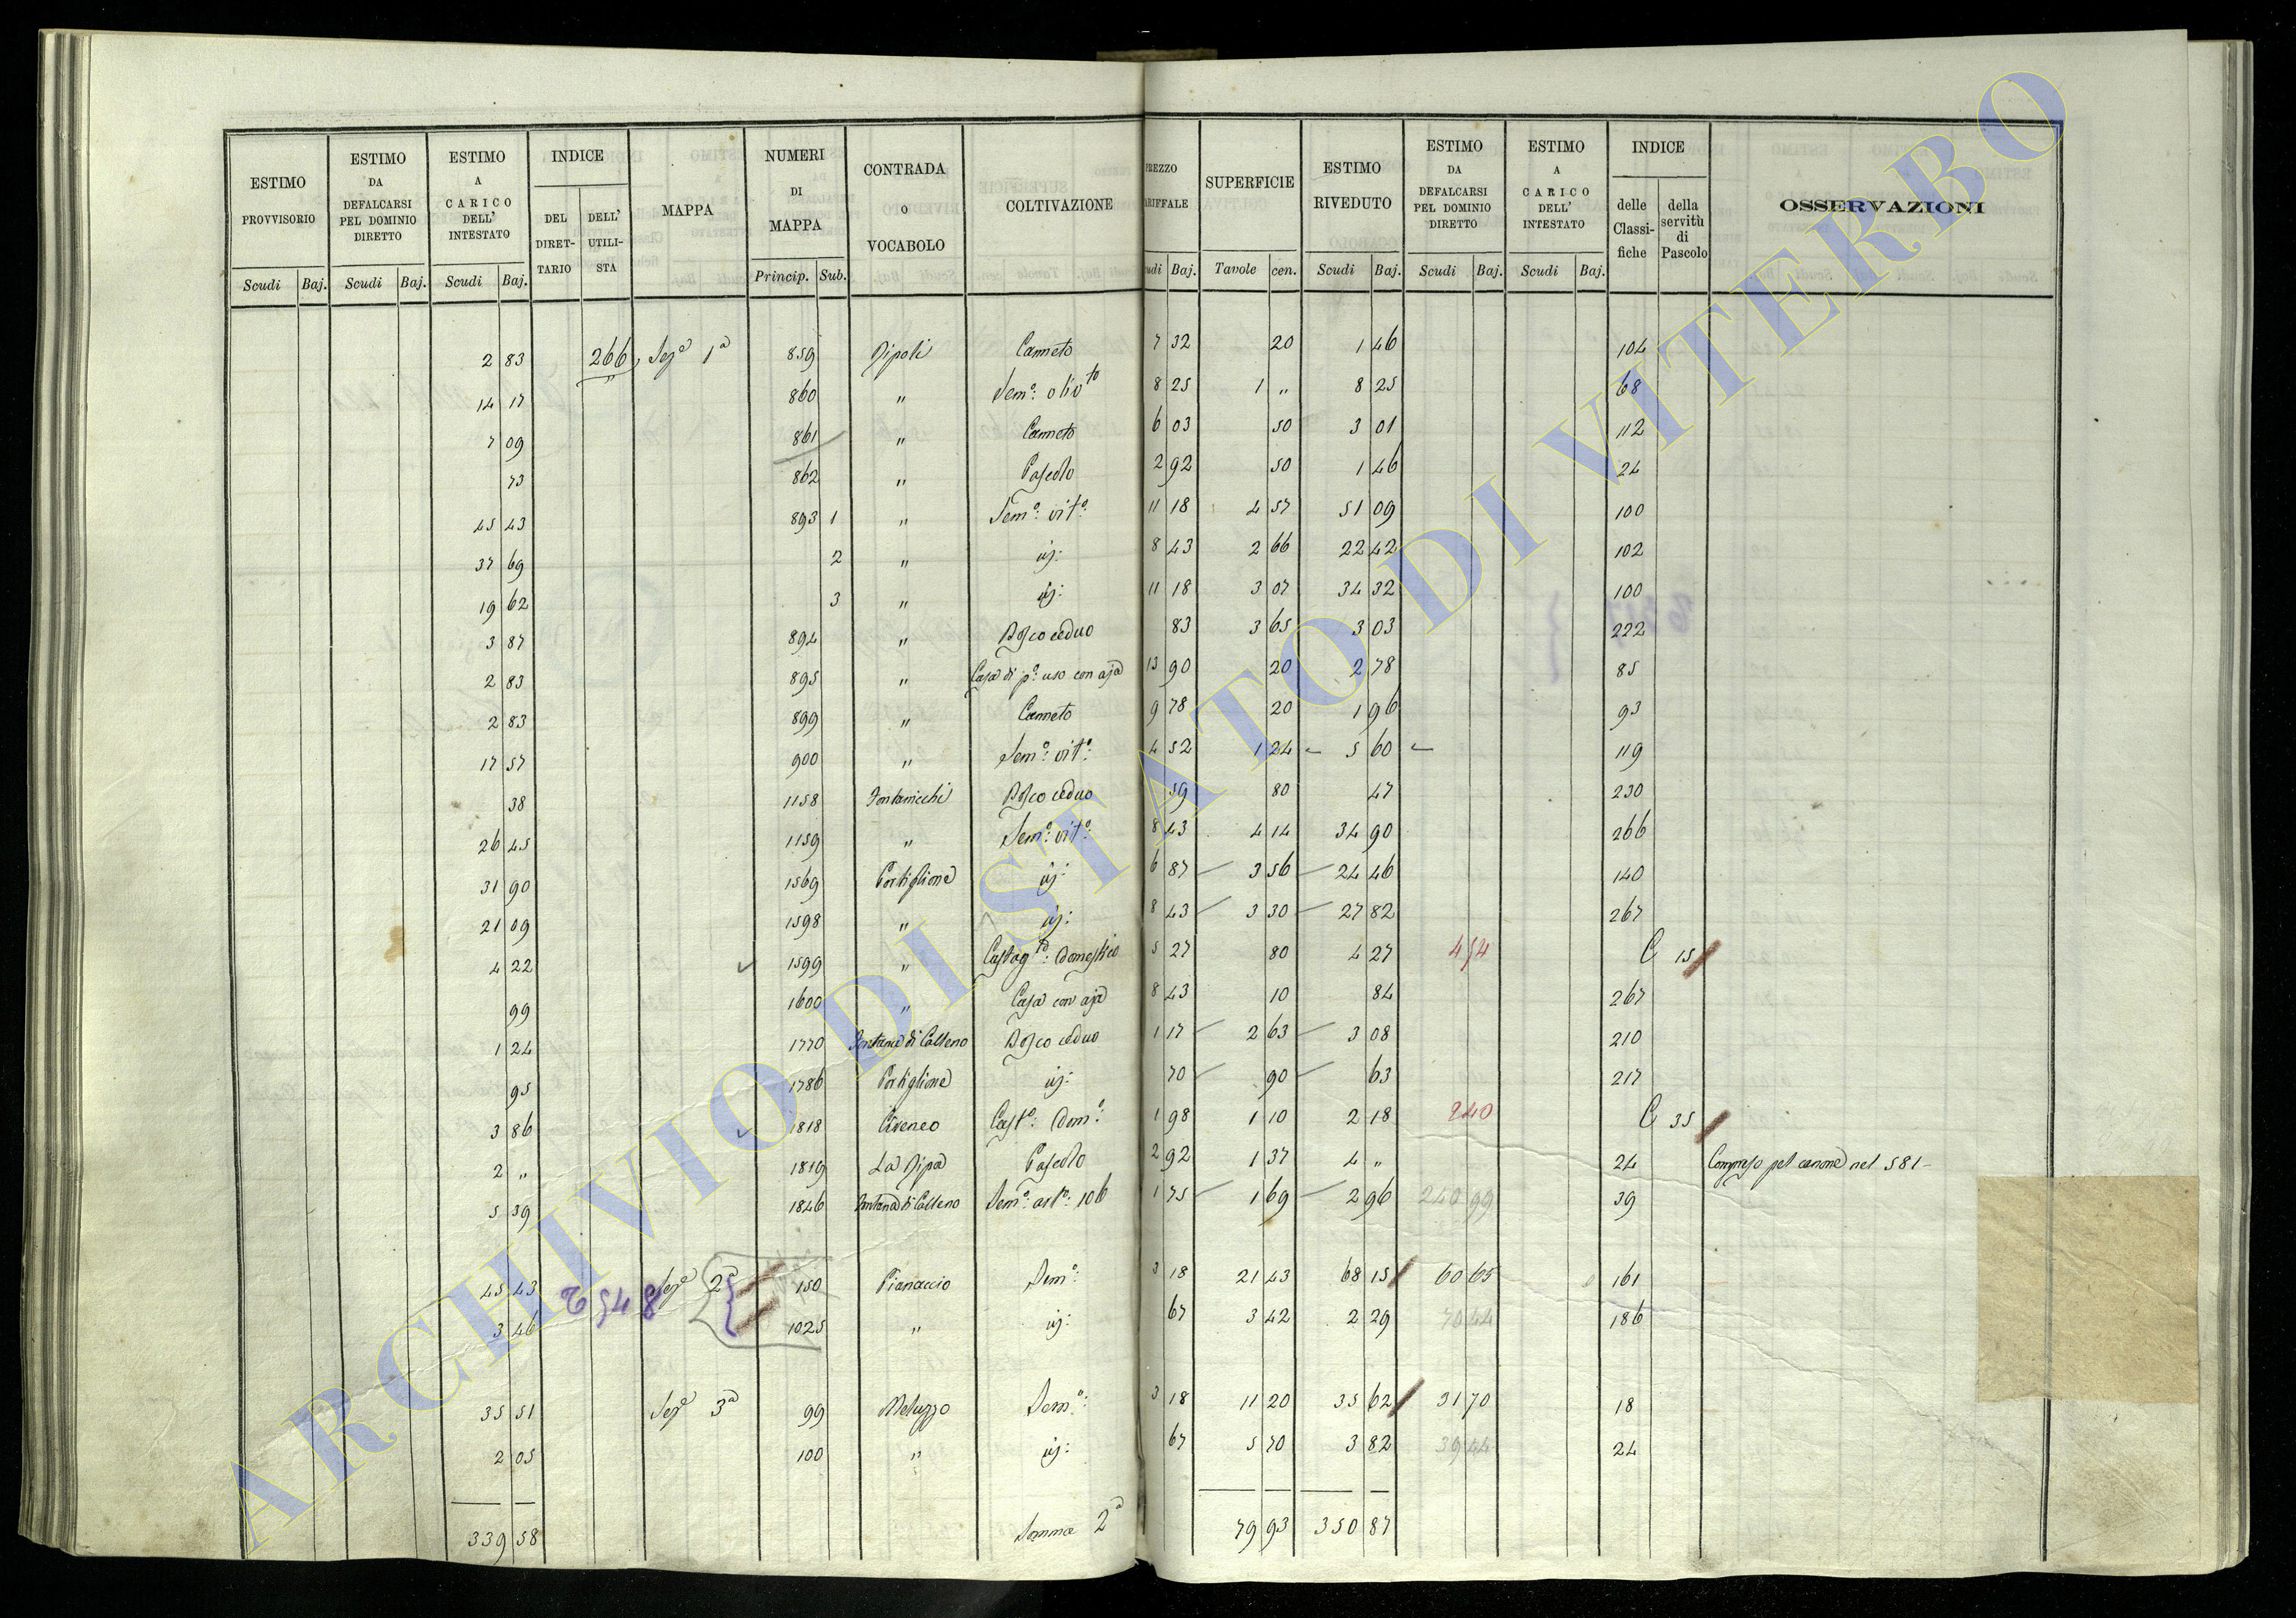 ESTIMO PROVVISORIO
ESTIMO DA DEFALCARSI PEL DOMINIO DIRETTO
ESTIMO A CARICO DELL' INTESTATO
INDICE
DEL DIRETTARIO
DELL' UTILISTA
MAPPA
NUMERI DI MAPPA
CONTRADA O VOCABOLO
COLTIVAZIONE
PREZZO
ARIFFALE
SUPERFICIE
ESTIMO RIVEDUTO
ESTIMO DA DEFALCARSI PEL DOMINIO DIRETTO
ESTIMO A CARICO DELL' INTESTATO
INDICE
delle Classifiche
della servitù di Pascolo
OSSERVAZIONI
Scudi Baj. Scudi Baj. Scudi Baj. Princip. Sub. udi Baj. Tavole cen. Scudi Baj. Scudi Baj. Scudi Baj.
2 83 266 Sez.e 1a 859 Ripoli Canneto 7 32 20 1 46 104
14 17 860 " Sem.o oliv.to 8 25 1 " 8 25 68
7 09 861 " Canneto 6 03 50 3 01 112
73 862 " Pascolo 2 92 50 1 46 24
45 43 893 1 " Sem.o vit.o 11 18 4 57 51 09 100
37 69 2 " id: 8 43 2 66 22 42 102
19 62 3 " id: 11 18 3 07 34 32 100
3 87 894 " Bosco ceduo 83 3 65 3 03 222
2 83 895 " Casa di p.o uso con aja 13 90 20 2 78 85
2 83 899 " Canneto 9 78 20 1 96 93
17 57 900 " Sem.o vit.o 4 52 1 24 5 60 119
38 1158 Fontanicchi Bosco ceduo 59 80 47 230
26 45 1159 " Sem.o vit.o 8 43 4 14 34 90 266
31 90 1569 Portiglione id: 6 87 3 56 24 46 140
21 09 1598 " id: 8 43 3 30 27 82 267
4 22 1599 " Castag.to Domestico 5 27 80 4 27 4 54 C 15
99 1600 " Casa con aja 8 43 10 84 267
1 24 1770 Fontana di Calleno Bosco ceduo 1 17 2 63 3 08 210
95 1786 Portiglione id: 70 90 63 217
3 86 1818 Cast.o Dom.o 1 98 1 10 2 18 2 40 C 35
2 " 1819 La Ripa Pascolo 2 92 1 37 4 " 24 Compreso pel canone nel 581
5 39 1846 Fontana di Calleno Sem.o 1 75 1 69 2 96 240 99 39
45 43 Sez.e 2a 150 Pianaccio Sem.o 3 18 21 43 68 15 60 65 161
3 46 1025 " id: 67 3 42 2 29 70 44 186
35 51 Sez.e 3a 99 Meluzzo Sem.o 3 18 11 20 35 62 31 70 18
2 05 100 " id: 67 5 70 3 82 39 44 24
339 58 Somma 2a 79 93 350 87
ARCHIVIO DI STATO DI VITERBO